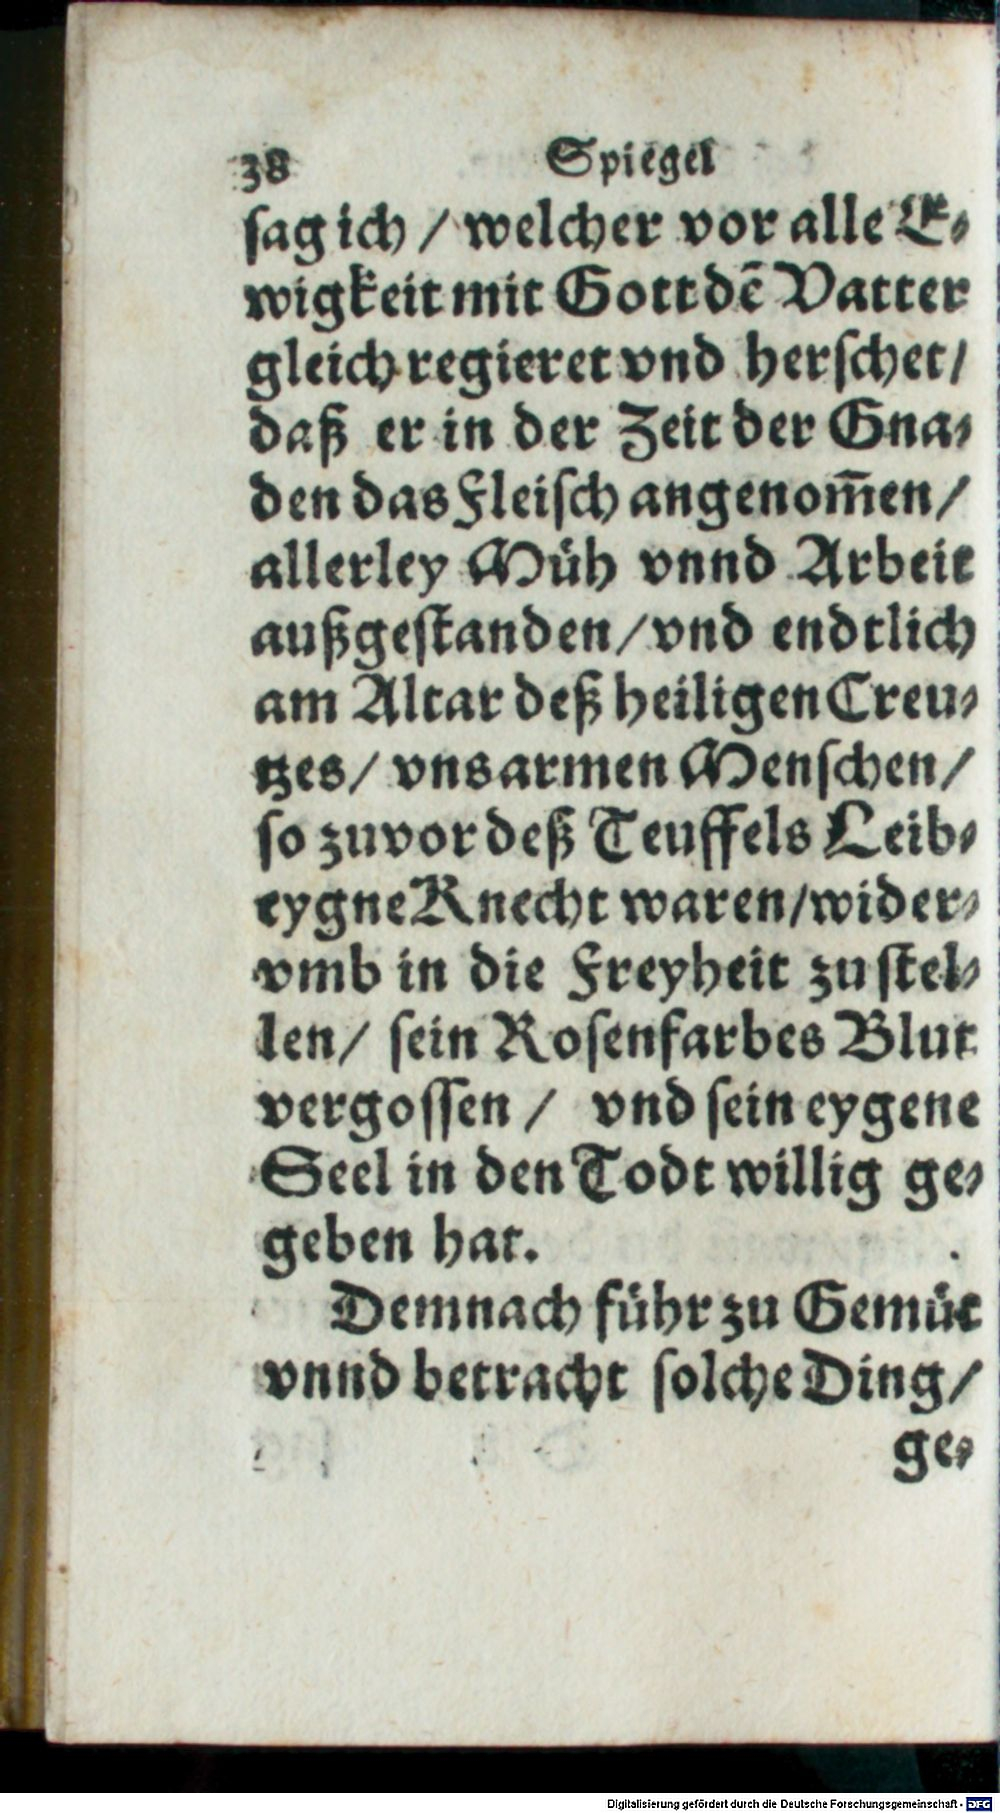 38 Spiegel
ſag ich / welcher vor alle E⸗
wigkeit mit Gott dẽ Vatter
gleich regieret vnd herſchet /
daß er in der Zeit der Gna⸗
den das Fleiſch angenom̃en /
allerley Müh vnnd Arbeit
außgeſtanden / vnd endtlich
am Altar deß heiligen Creu⸗
tzes / vns armen Menſchen /
ſo zuvor deß Teuffels Leib⸗
eygne Knecht waren / wider⸗
vmb in die Freyheit zu ſtel⸗
len / ſein Roſenfarbes Blut
vergoſſen / vnd ſein eygene
Seel in den Todt willig ge⸗
geben hat.
Demnach führ zu Gemüt
vnnd betracht ſolche Ding /
ge⸗
Digitalisierung gefördert durch die Deutsche Forschungsgemeinschaft - DFG